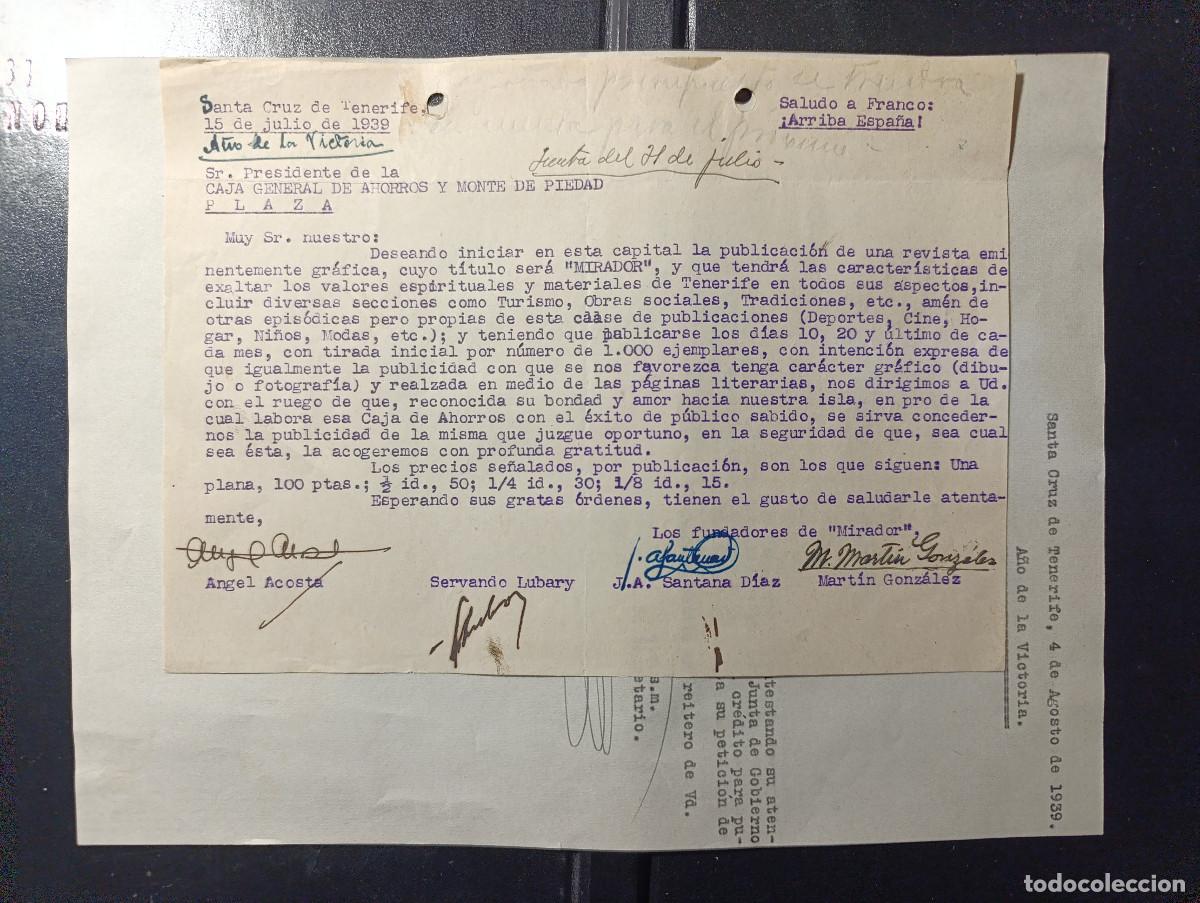 Santa Cruz de Tenerife,
15 de julio de 1939
Año de la Victoria
Saludo a Franco:
¡Arriba España!
Junta del 21 de julio -
Sr. Presidente de la
CAJA GENERAL DE AHORROS Y MONTE DE PIEDAD
P L A Z A
Muy Sr. nuestro:
Deseando iniciar en esta capital la publicación de una revista emi
nentemente gráfica, cuyo título será "MIRADOR", y que tendrá las características de
exaltar los valores espirituales y materiales de Tenerife en todos sus aspectos,in-
cluir diversas secciones como Turismo, Obras sociales, Tradiciones, etc., amén de
otras episódicas pero propias de esta clase de publicaciones (Deportes, Cine, Ho-
gar, Niños, Modas, etc.); y teniendo que publicarse los días 10, 20 y último de ca-
da mes, con tirada inicial por número de 1.000 ejemplares, con intención expresa de
que igualmente la publicidad con que se nos favorezca tenga carácter gráfico (dibu-
jo o fotografía) y realzada en medio de las páginas literarias, nos dirigimos a Ud.
con el ruego de que, reconocida su bondad y amor hacia nuestra isla, en pro de la
cual labora esa Caja de Ahorros con el éxito de público sabido, se sirva conceder-
nos la publicidad de la misma que juzgue oportuno, en la seguridad de que, sea cual
sea ésta, la acogeremos con profunda gratitud.
Los precios señalados, por publicación, son los que siguen: Una
plana, 100 ptas.; ½ id., 50; 1/4 id., 30; 1/8 id., 15.
Esperando sus gratas órdenes, tienen el gusto de saludarle atenta-
mente,
Los fundadores de "Mirador",
M. Martín González
Angel Acosta Servando Lubary J.A. Santana Díaz Martín González
Santa Cruz de Tenerife, 4 de Agosto de 1939.
Año de la Victoria.
testando su aten-
Junta de Gobierno
crédito para pu-
a su petición de
reitero de Vd.
s.m.
etario.
todocoleccion